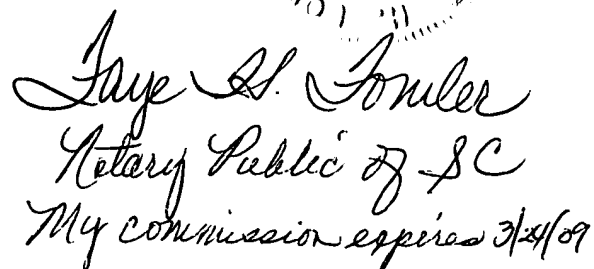 Faye H. Fowler
Notary Public of SC
My commission expires 3/24/09